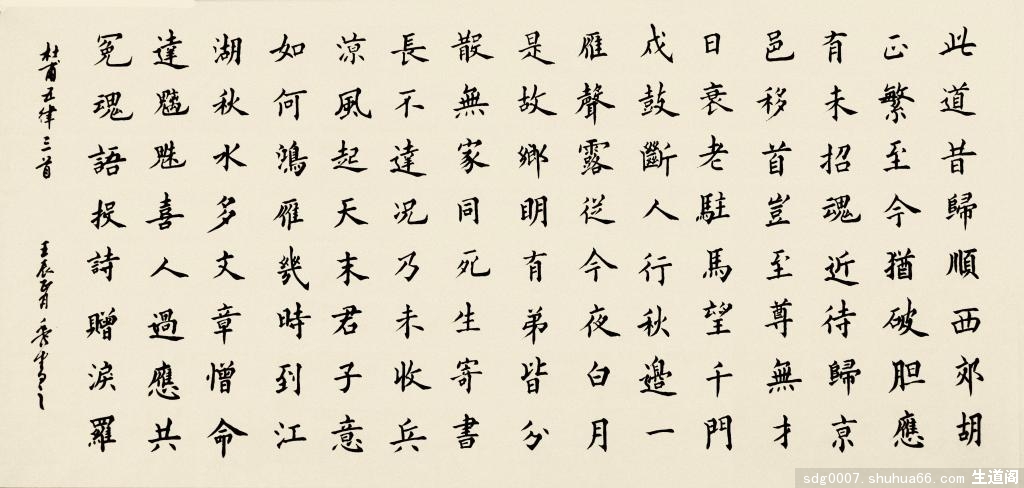 此道昔歸順西郊胡
正繁至今猶破胆應
有未招魂近待歸京
邑移首豈至尊無才
日衰老駐馬望千門
戍鼓斷人行秋邊一
雁聲露從今夜白月
是故鄉明有弟皆分
散無家同死生寄書
長不達况乃未收兵
涼風起天末君子意
如何鴻雁幾時到江
湖秋水多文章憎命
達魑魅喜人過應共
冤魂語投詩贈淚羅
杜甫五律三首
壬辰正月
sdg0007.shuhua66.com 生道阁